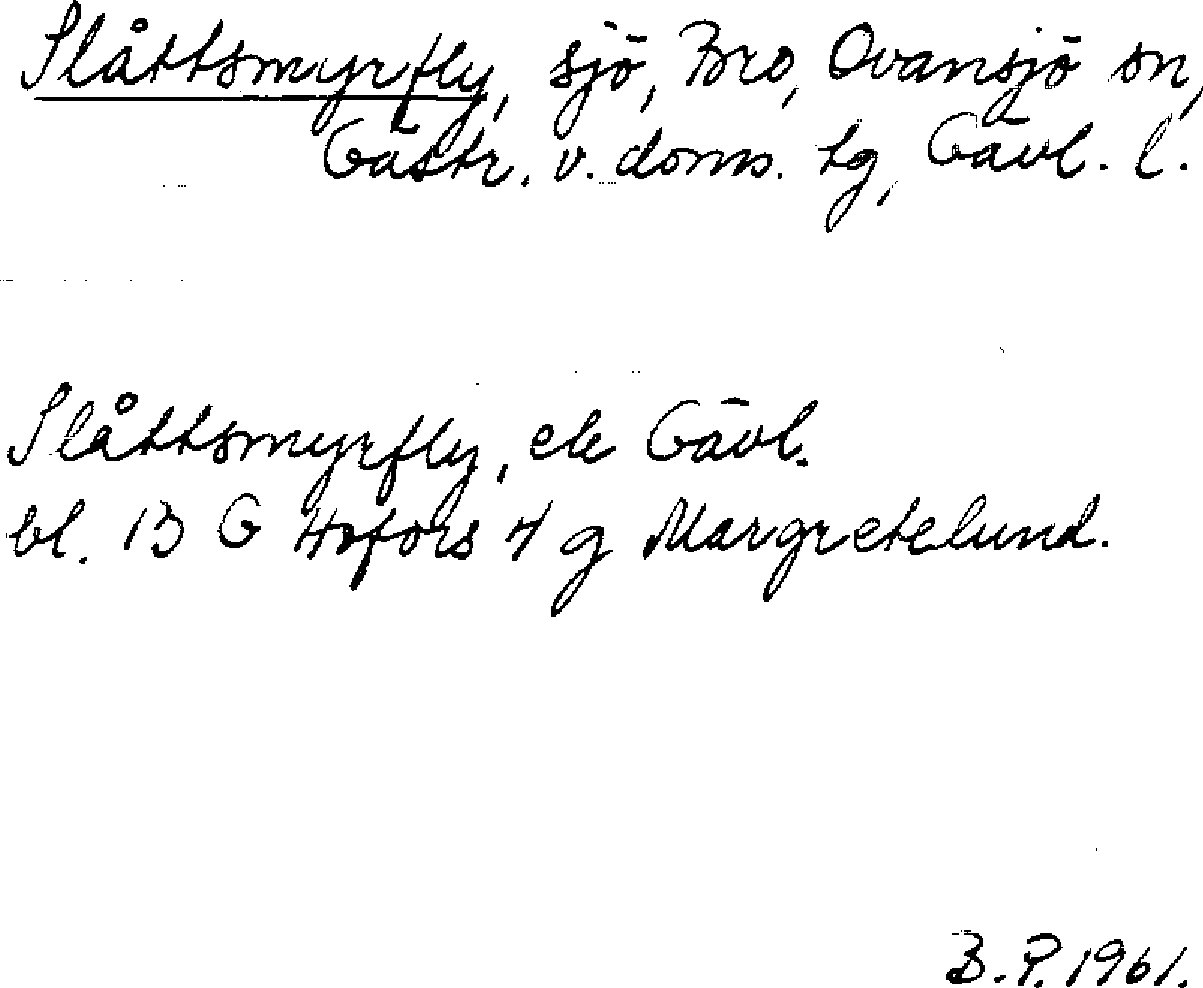 Slåttsmyrfly, sjö, Bro, Ovansjö sn,
Gästr. v. doms. tg, Gävl. l.
Slåttsmyrfly, ek Gävl.
bl. 13 G Hofors 4 g Margretelund.
B.P. 1961.